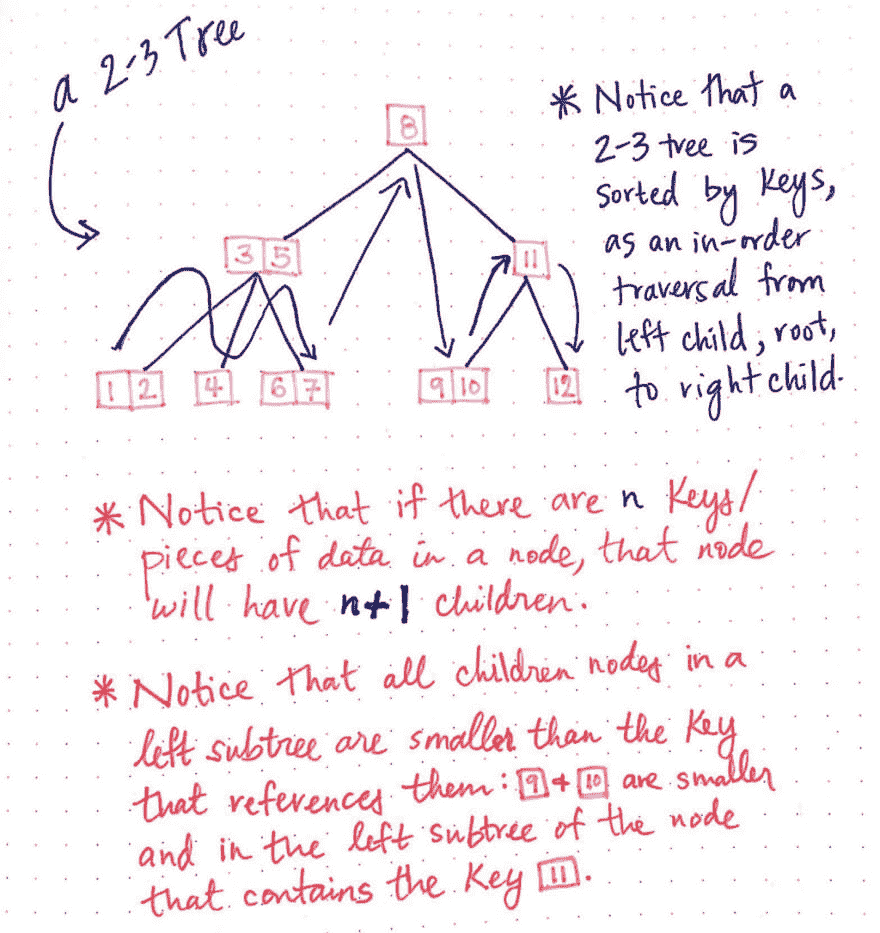 a 2-3 Tree
8
3 5
11
1 2
4
6 7
9 10
12
* Notice that a
2-3 tree is
sorted by keys,
as an in-order
traversal from
left child, root,
to right child.
* Notice that if there are n keys/
pieces of data in a node, that node
will have n+1 children.
* Notice that all children nodes in a
left subtree are smaller than the key
that references them: 9 + 10 are smaller
and in the left subtree of the node
that contains the key 11.